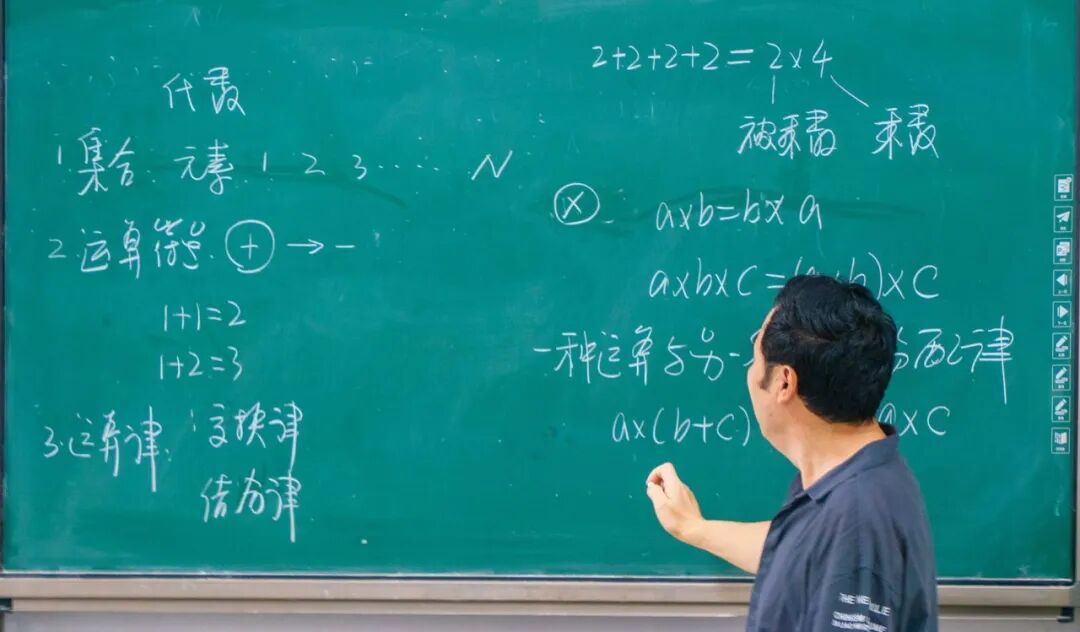 代数
1. 集合 元素 1 2 3 ······ N
2. 运算符号 + → −
1+1=2
1+2=3
3. 运算律: 交换律
结合律
2+2+2+2=2×4
被乘数 乘数
× a×b=b×a
a×b×c=(a×b)×c
一种运算与另一 分配律
a×(b+c) a×c
THE